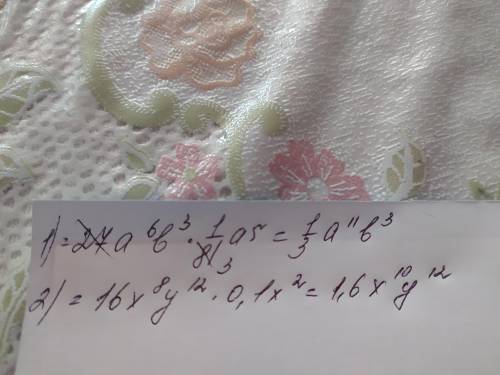 1) = 27a⁶b³ · 1/81 3 a⁵ = 1/3 a¹¹b³
2) = 16x⁸y¹² · 0,1x² = 1,6x¹⁰y¹²